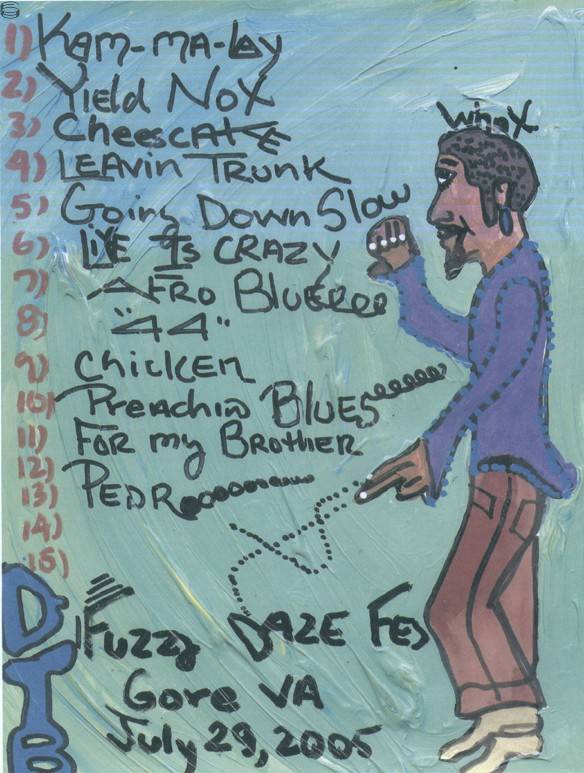 1) Kam-ma-lay
2) Yield Not
3) Cheescake
4) LEAVIN TRUNK
5) Going Down Slow
6) LIFE Is CRAZY
7) AFRO Blue
8) "44"
9) Chicken
10) Preachin Blues
11) FOR my Brother
12) PEDRO
13)
14)
15)
DTB
Fuzzy DAZE Fes
Gore VA
July 29, 2005